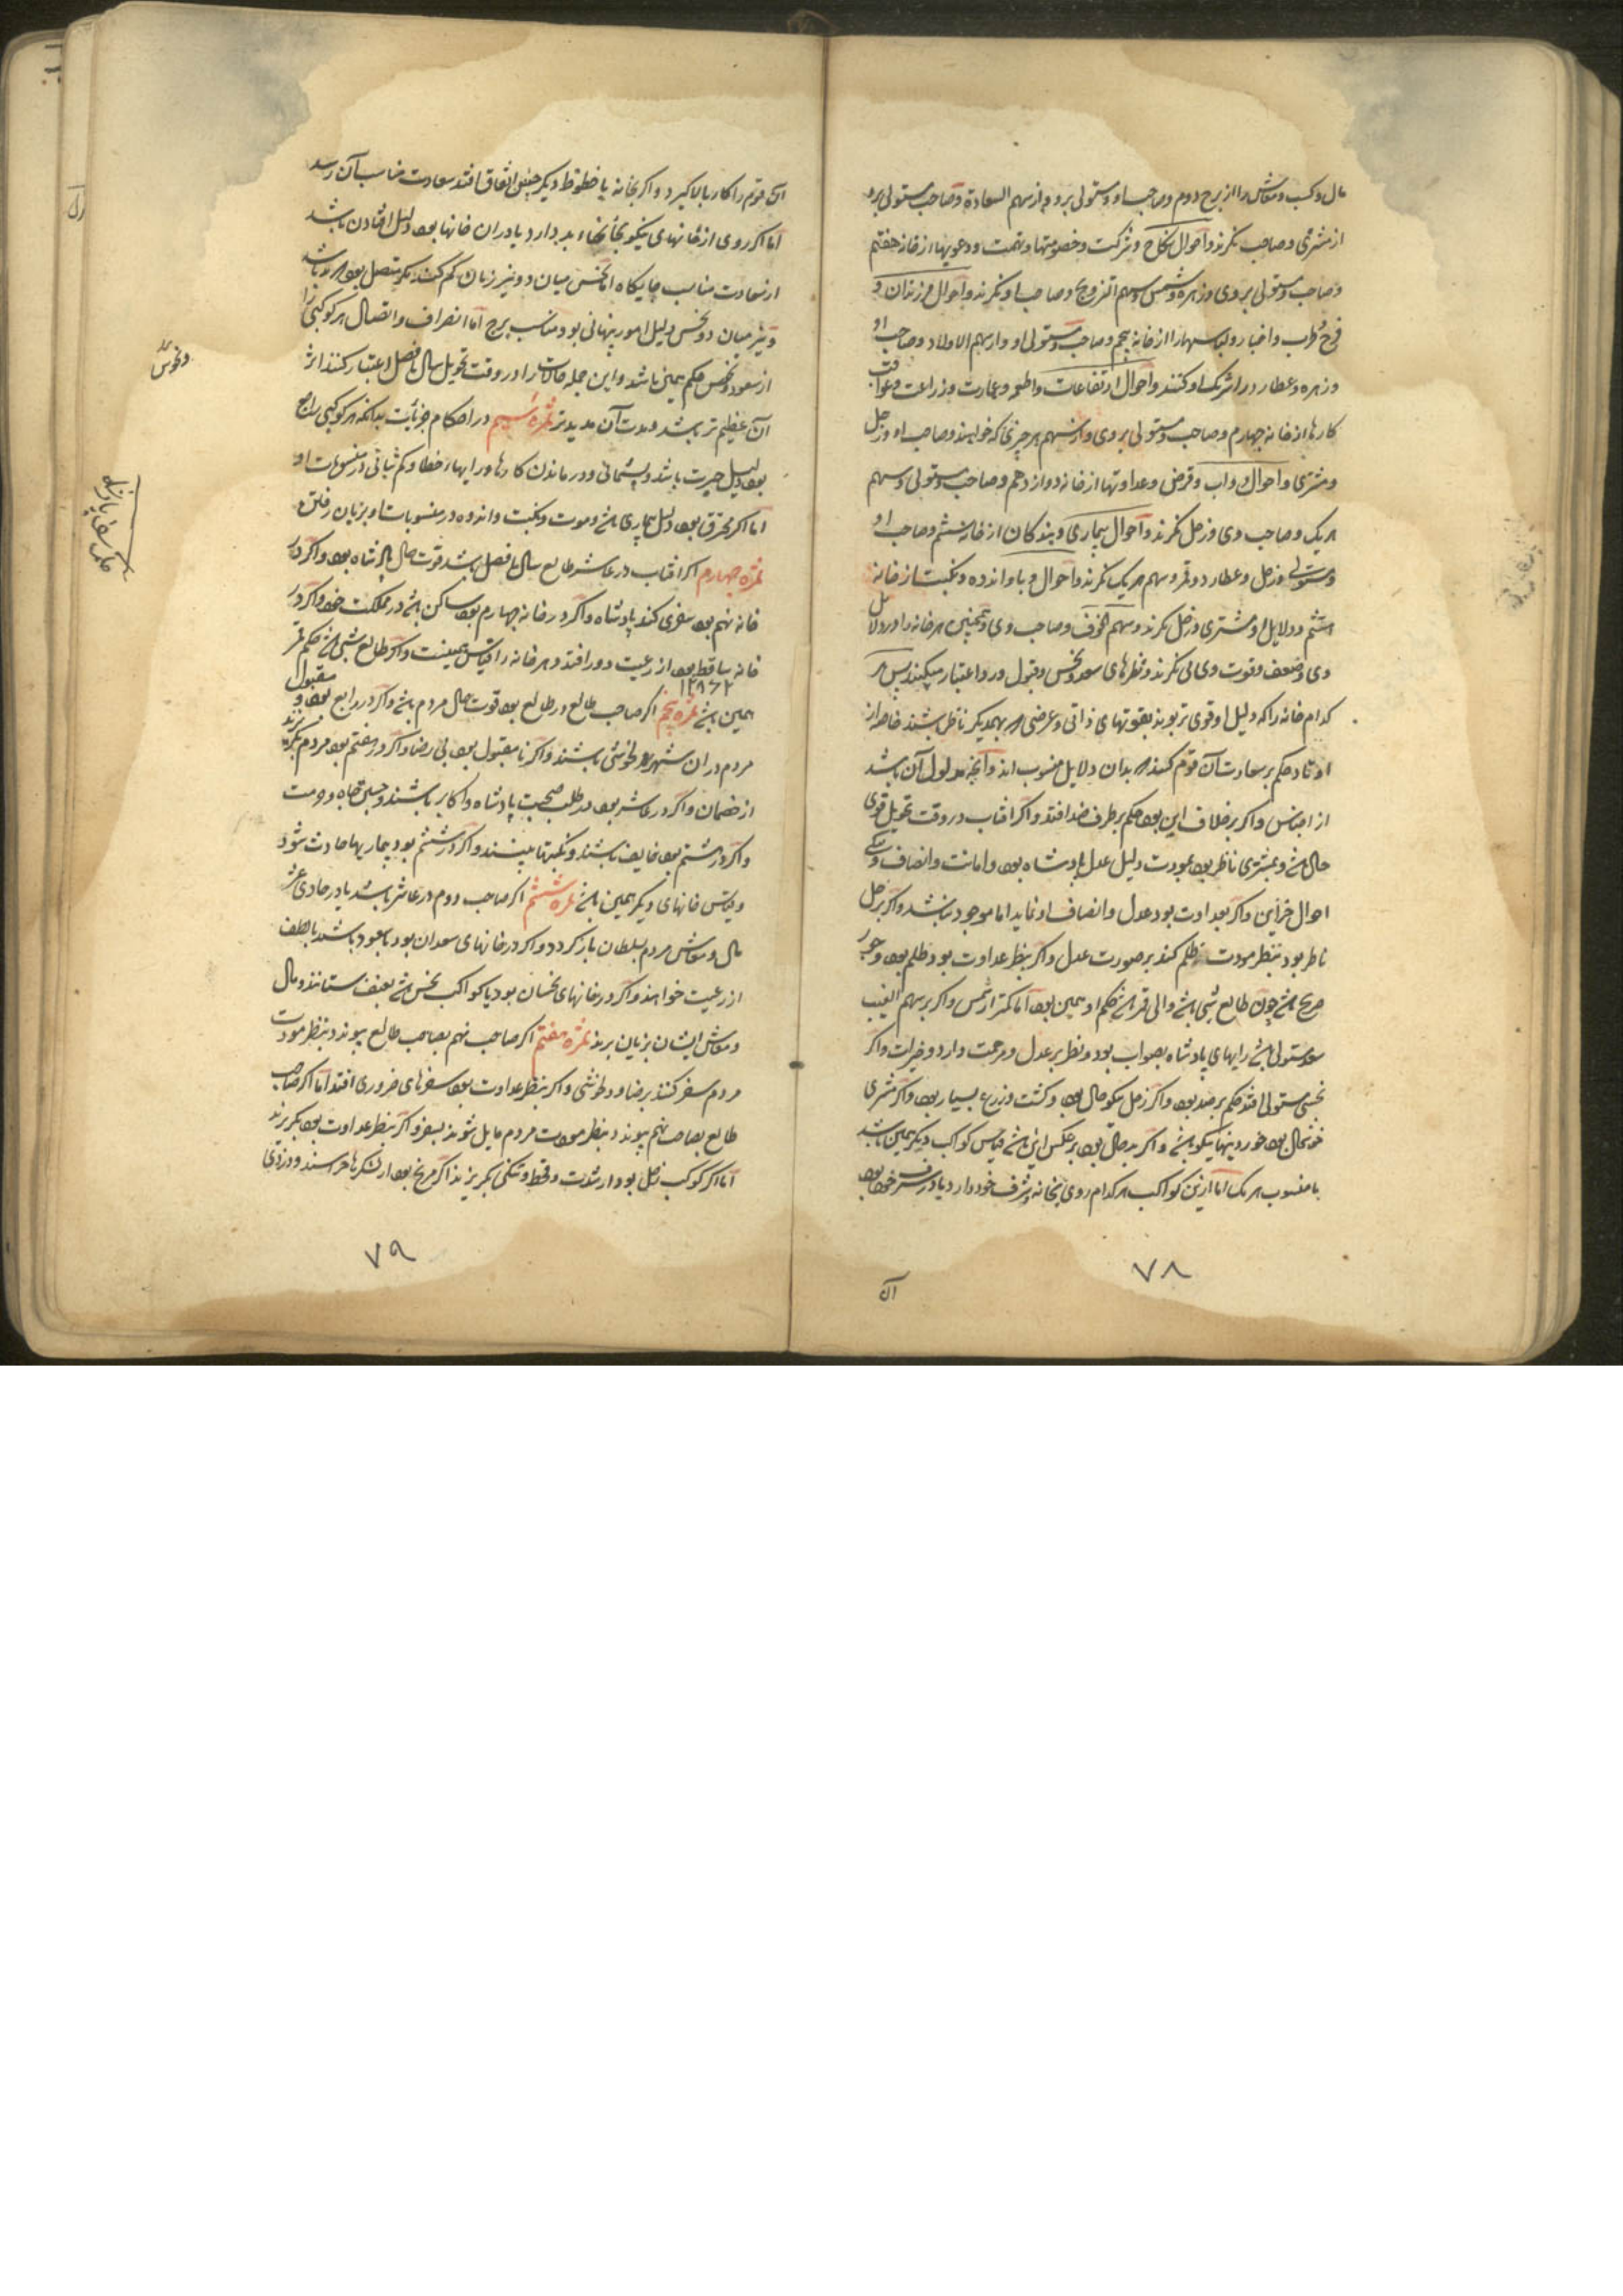 مال و کسب و معاش را از برج دوم و صاحب او و مستولی برو و از سهم السعادة و صاحب مستولی برو
از مشتری و صاحب نکرند و احوال نکاح و شرکت و خصومتها و تهمت و دعویها از خانه هفتم
و صاحب و مستولی بروی و زهره و شمس و سهم التزویج و صاحب او نکرند و احوال فرزندان و
فرح و طرب و اخبار و لباسها را از خانه پنجم و صاحب و مستولی او و از سهم الاولاد و صاحب او
و زهره و عطارد را شریک او کنند و احوال ارتفاعات و اطعمه و عمارت و زراعت و عواقب
کارها از خانه چهارم و صاحب و مستولی بروی و از سهم هر چیزی که خواهند و صاحب او و زحل
و مشتری و احوال دواب و قرض و عداوتها از خانه دوازدهم و صاحب و مستولی و سهم
هر یک و صاحب وی و زحل نکرند و احوال بیماری و بندکان از خانه ششم و صاحب او
و مستولی و زحل و عطارد و قمر و سهم هر یک نکرند و احوال وبا و اندوه و نکبت از خانه
هشتم و دلایل او مشتری و زحل نکرند و سهم الخوف و صاحب وی و همچنین هر خانه را و دلایل
وی و ضعف و قوت وی می نکرند و نظرهای سعد و نحس و قبول و رد اعتبار میکنند پس هر
کدام خانه را که دلیل او قوی تر بود بقوتهای ذاتی و عرضی و بهمدیکر ناظر باشند خاصه از
اوتاد حکم بر سعادت آن قوم کنند که بدان دلایل منسوب اند و آنچه مدلول آن باشد
از اجناس و اکر برخلاف این بود حکم بر طرف ضد افتد و اکر افتاب در وقت تحویل قوی
حال باشد و بمشتری ناظر بود بمودت دلیل عدل پادشاه بود و امانت و انصاف و نیکی
احوال خزاین و اکر بعداوت بود عدل و انصاف او نماید اما موجود نباشد و اکر بزحل
ناظر بود بنظر مودت ظلم کند بر صورت عدل و اکر بنظر عداوت بود ظلم بود و جور
صریح باشد چون طالع شبی باشد والی قمر باشد حکم او همین بود اما کمتر از شمس و اکر بر سهم الغیب
سعد مستولی باشد رایهای پادشاه بصواب بود و نظر بر عدل و مرحمت دارد و خیرات و اکر
نحسی مستولی افتد حکم بر ضد بود و اکر زحل نیکو حال بود و کشت و زرع بسیار بود و اکر مشتری
خوشحال بود خوردنیها نیکو باشد و اکر بدحال بود بر عکس این باشد قیاس کواکب دیکر همین باشد
با منسوب هر یک اما ازین کواکب هر کدام روی بخانه و شرف خود دارد یا در شرف خود بود
۷۸
آن
آن قوم را کار بالا کیرد و اکر بخانه یا خطوط دیکر چنین اتفاق افتد سعادت مناسب آن رسد
اما اکر روی از خانهای نیکو بخانهاء بد دارد یا در ان خانها بود دلیل افتادن باشد
از سعادت مناسب جایکاه اما نحس میان دو نیر زیان کم کند مکر متصل بود که بد باشد
و نیر میان دو نحس دلیل امور پنهانی بود مناسب برج اما انصراف و اتصال هر کوکبی را
از سعود و نحس حکم همین باشد و این جمله حالات را در وقت تحویل سال یا فصل اعتبار کنند اثر
آن عظیم تر باشد و مدت آن مدیدتر ثمره سیم در احکام جزئیات بدانکه هر کوکبی راجع
بود دلیل حیرت باشد و پشیمانی و درماندن کارها و رایهاء خطا و کم ثباتی در منسوبات او
اما اکر محترق بود دلیل بیماری باشد و موت و نکبت و اندوه در منسوبات او بزیان رفتن
ثمره چهارم اکر افتاب در عاشر طالع سال یا فصل باشد قوت حال پادشاه بود و اکر در
خانه نهم بود سفری کند پادشاه و اکر در خانه چهارم بود ساکن باشد در مملکت خود و اکر در
خانه ساقط بود از رعیت دور افتد و هر خانه را قیاس همینست و اکر طالع شبی باشد حکم قمر
همین باشد ثمره پنجم اکر صاحب طالع در طالع بود قوت حال مردم باشد و اکر در رابع بود و مقبول
مردم در ان شهر بدلخوشی باشند و اکر نا مقبول بود بی رضا و اکر در هفتم بود مردم بکریزند
از خصمان و اکر در عاشر بود در طلب صحبت پادشاه و اکابر باشند و جستن جاه و حرمت
و اکر در هشتم بود خایف باشند و نکبتها بینند و اکر در ششم بود بیماریها حادث شود
و قیاس خانهای دیکر همین باشد ثمره ششم اکر صاحب دوم در عاشر باشد یا در حادی عشر
مال و معاش مردم بسلطان باز کردد و اکر در خانهای سعدان بود یا سعود باشد بلطف
از رعیت خواهند و اکر در خانهای نحسان بود یا کواکب نحس باشد بعنف ستانند و مال
و معاش ایشان بزیان برند ثمره هفتم اکر صاحب نهم بصاحب طالع پیوندد بنظر مودت
مردم سفر کنند برضا و دلخوشی و اکر بنظر عداوت بود سفرهای ضروری افتد اما اکر صاحب
طالع بصاحب نهم پیوندد بنظر مودت مردم مایل شوند بسفر و اکر بنظر عداوت بود بکریزند
اما اکر کوکب زحل بود از شدت و قحط و تنکی بکریزند اکر مریخ بود از لشکرها هراسند و دزدی
و نحوس
۷۹